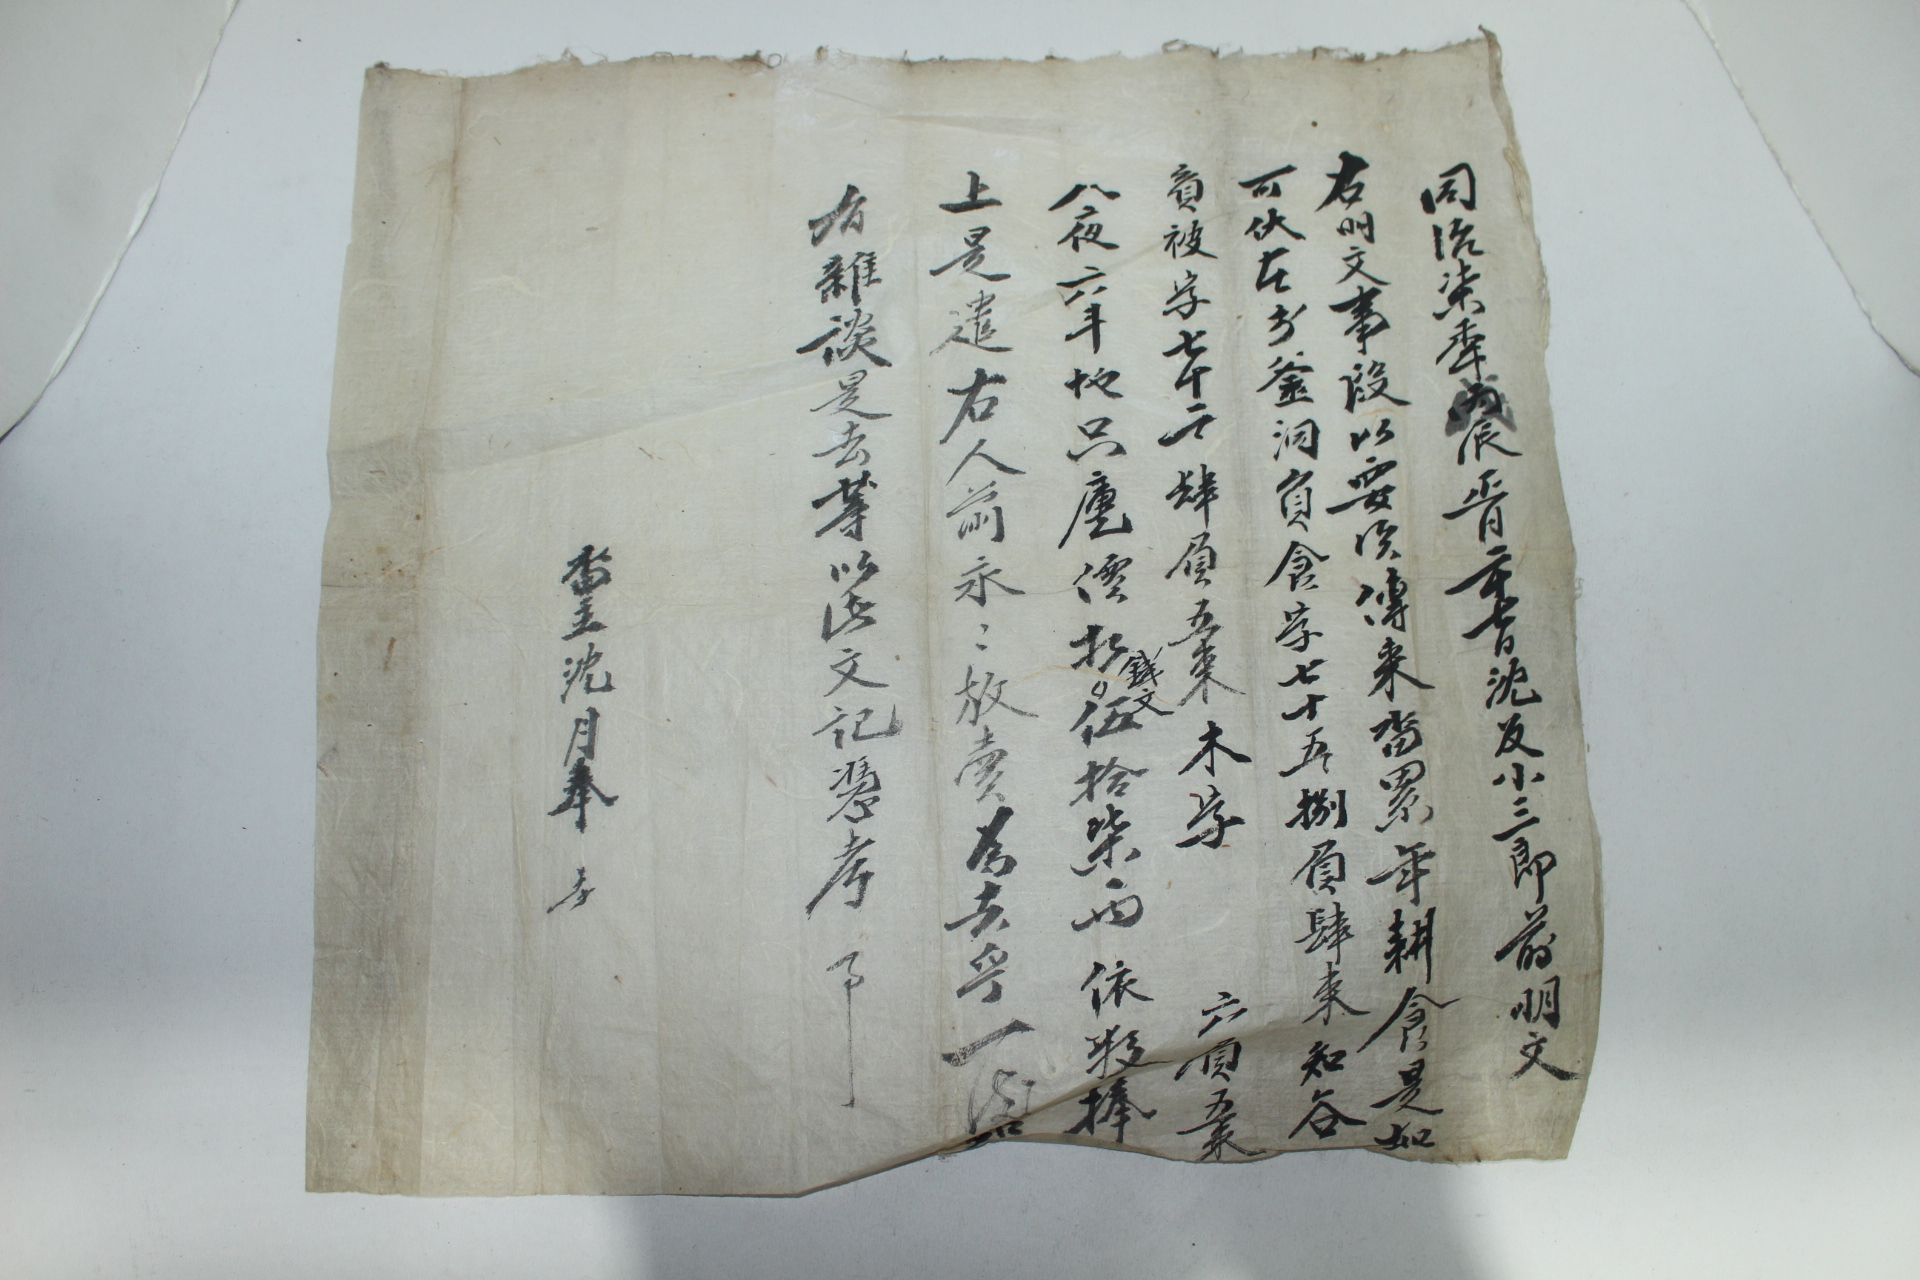 同治柒年戊辰正月二十七日沈及小三郎前明文
右明文事段以要用傳来畓累年耕食是如
可伏在於釜洞員食字七十五捌負肆束知谷
員被字七十二肆負五束木字六負五束
八夜六斗地只廛價折錢文伍拾柒兩依數捧
上是遣右人前永〻放賣爲去乎一後
有雜談是去等以此文記憑考事
畓主沈月奉